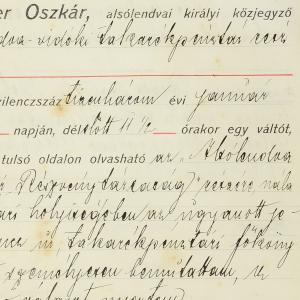 er Oszkár, alsólendvai királyi közjegyző
vidéki takarékpénztár rész
zilenczszáz tizenhárom évi január
napján, délelőtt 11 ½ órakor egy váltót,
tulsó oldalon olvasható az „Alsólendva
Részvénytársaság)" részére nála
helyiségében az ugyanott je
ur, takarékpénztári főköny
személyesen bemutattam, s